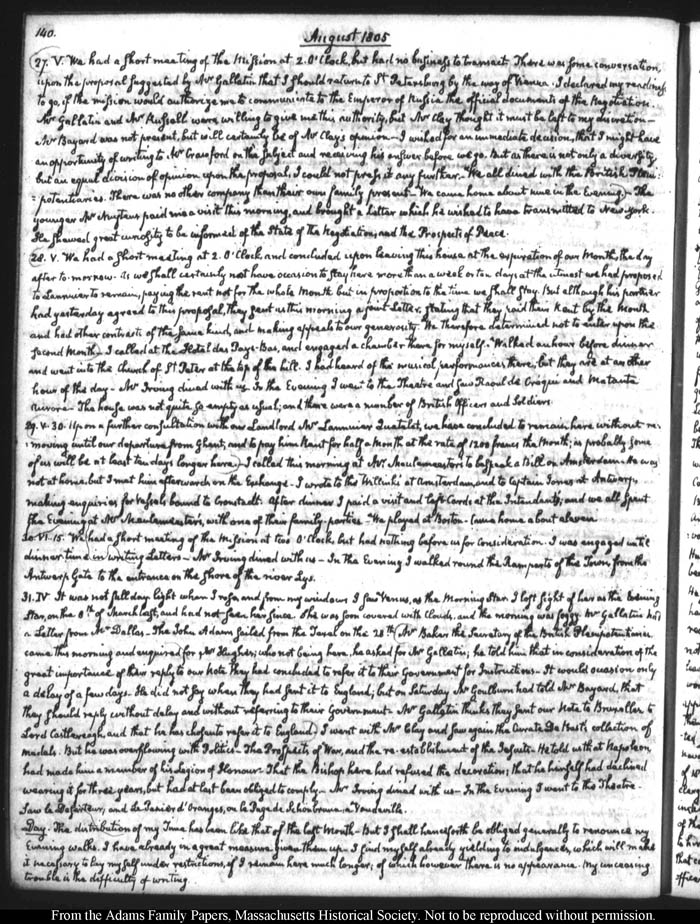 140.
August 1805
27. V. We had a short meeting of the Mission at 2. O'Clock, but had no business to transact. There was some conversation,
upon the proposal suggested by Mr Gallatin that I should return to St Petersburg by the way of Vienna. I declared my readiness
to go, if the mission would authorize me to communicate to the Emperor of Russia the official documents of the Negotiation.
Mr Gallatin and Mr Russell were willing to give me this authority, but Mr Clay thought it must be left to my discretion—
Mr Bayard was not present, but will certainly be of Mr Clay's opinion— I wished for an immediate decision, that I might have
an opportunity of writing to Mr Crawford on the subject and receiving his answer before we go. But as there is not only a diversity,
but an equal division of opinion upon the proposal, I could not press it any further. We all dined with the British Pleni-
-potentiaries. There was no other company than their own family present. We came home about nine in the Evening.— The
younger Mr Nuytens paid me a visit this morning, and brought a Letter which he wished to have transmitted to New-York.
He shewed great curiosity to be informed of the State of the Negotiation, and the Prospects of Peace.
28. V. We had a short meeting at 2. O'Clock and concluded upon leaving this house at the expiration of our Month, the day
after to-morrow. As we shall certainly not have occasion to stay here more than a week or ten days at the utmost we had proposed
to Lannuier to remain, paying the rent not for the whole Month but in proportion to the time we shall stay. But although his partner
had yesterday agreed to this proposal, they sent us this morning a joint Letter, stating that they paid their Rent by the Month
and had other contracts of the same kind, and making appeals to our generosity. We therefore determined not to enter upon the
second Month. I called at the Hotel des Pays-Bas, and engaged a chamber there for myself. Walked an hour before dinner
and went into the Church of St Peter at the top of the hill. I had heard of the musical performances there, but they are at another
hour of the day— Mr Irving dined with us. In the Evening I went to the Theatre and saw Raoul de Créqui and
The house was not quite so empty as usual; and there were a number of British Officers and Soldiers.
29. V. 30. Upon a further consultation with our Landlord Mr Lannuier Quatelet, we have concluded to remain here without re-
-moving until our departure from Ghent, and to pay him Rent for half a Month at the rate of 1200 francs the Month; as probably some
of us will be at least ten days longer here. I called this morning at Mr Meulemeester's to bespeak a Bill on Amsterdam. He was
not at home, but I met him afterwards on the Exchange. I wrote to the Willinks at Amsterdam, and to Captain Jones at Antwerp,
making enquiries for Vessels bound to Cronstadt. After dinner I paid a visit and left Cards at the Intendant's, and we all spent
the Evening at Mr Meulemeester's, with one of their family-parties. We played at Boston. Came home about eleven.
30. VI. 15. We had a short meeting of the Mission at two O'Clock, but had nothing before us for consideration. I was engaged until
dinner time in writing Letters— Mr Irving dined with us— In the Evening I walked round the Ramparts of the Town from the
Antwerp Gate to the entrance on the shore of the river Lys.
31. IV. It was not full day light when I rose, and from my windows I saw Venus, as the Morning Star. I lost sight of her as the Evening
Star, on the 8th of March last, and had not seen her since. She was soon covered with Clouds, and the morning was foggy. Mr Gallatin had
a Letter from Mr Dallas— The John Adams sailed from the Texel on the 28th. Mr Baker the Secretary of the British Plenipotentiaries
came this morning and enquired for Mr Hughes; who not being here, he asked for Mr Gallatin; he told him that in consideration of the
great importance of their reply to our note they had concluded to refer it to their Government for Instructions— It would occasion only
a delay of a few days. He did not say when they had sent it to England; but on Saturday Mr Goulburn had told Mr Bayard, that
they should reply without delay and without referring to their Government. Mr Gallatin thinks they sent our Note to Bruxelles to
Lord Castlereagh, and that he has chosen to refer it to England. I went with Mr Clay and saw again the Curate De Bast's collection of
medals. But he was overflowing with Politics— The Prospects of War, and the re-establishment of the Jesuits. He told us that Napoleon,
had made him a member of his Legion of Honour. That the Bishop here had refused the decoration; that he himself had declined
wearing it for three years, but had at last been obliged to comply.— Mr Irving dined with us— In the Evening I went to the Theatre.
Saw le Déserteur, and le Panier d'Oranges, ou le Page de Schonbrunn, a Vaudeville.
Day. The distribution of my Time has been like that of the last Month— But I shall henceforth be obliged generally to renounce my
Evening walks. I have already in a great measure given them up. I find myself already yielding to indulgences, which will make
it necessary to lay myself under restrictions, if I remain here much longer; of which however there is no appearance. My unceasing
trouble is the difficulty of writing.
From the Adams Family Papers, Massachusetts Historical Society. Not to be reproduced without permission.